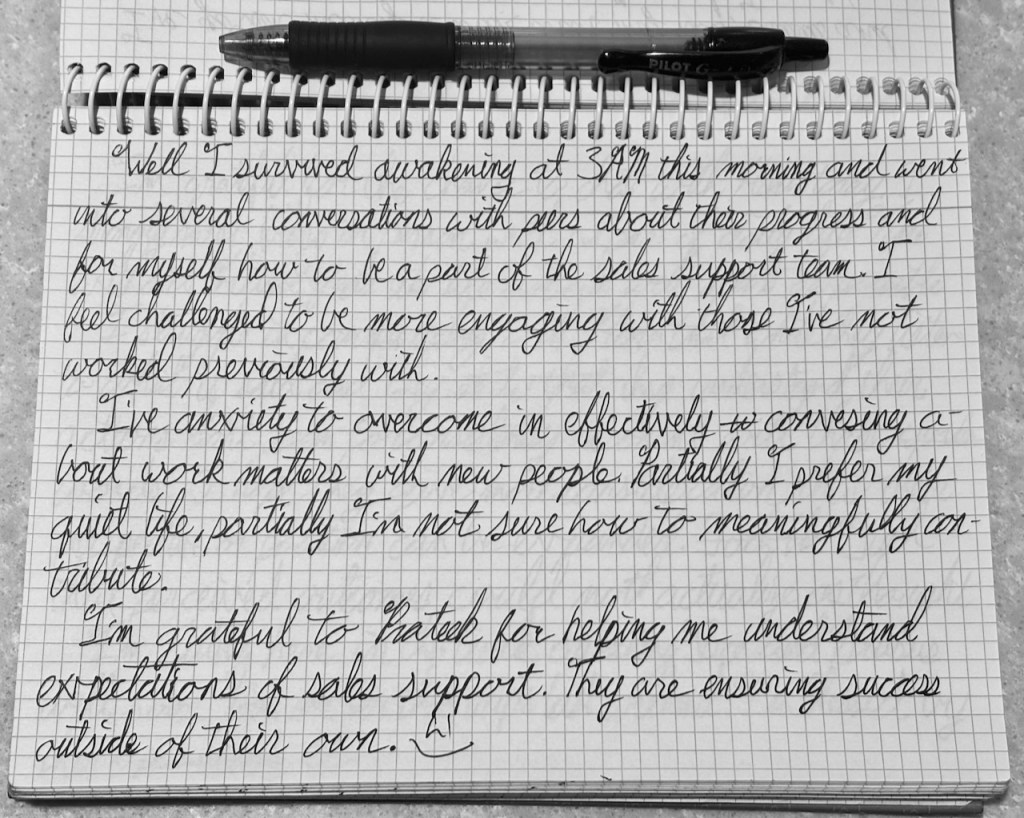 PILOT G
Well I survived awakening at 3AM this morning and went
into several conversations with peers about their progress and
for myself how to be a part of the sales support team. I
feel challenged to be more engaging with those I've not
worked previously with.
I've anxiety to overcome in effectively convesing a-
bout work matters with new people. Partially I prefer my
quiet life, partially I'm not sure how to meaningfully con-
tribute.
I'm grateful to Prateek for helping me understand
expectations of sales support. They are ensuring success
outside of their own.